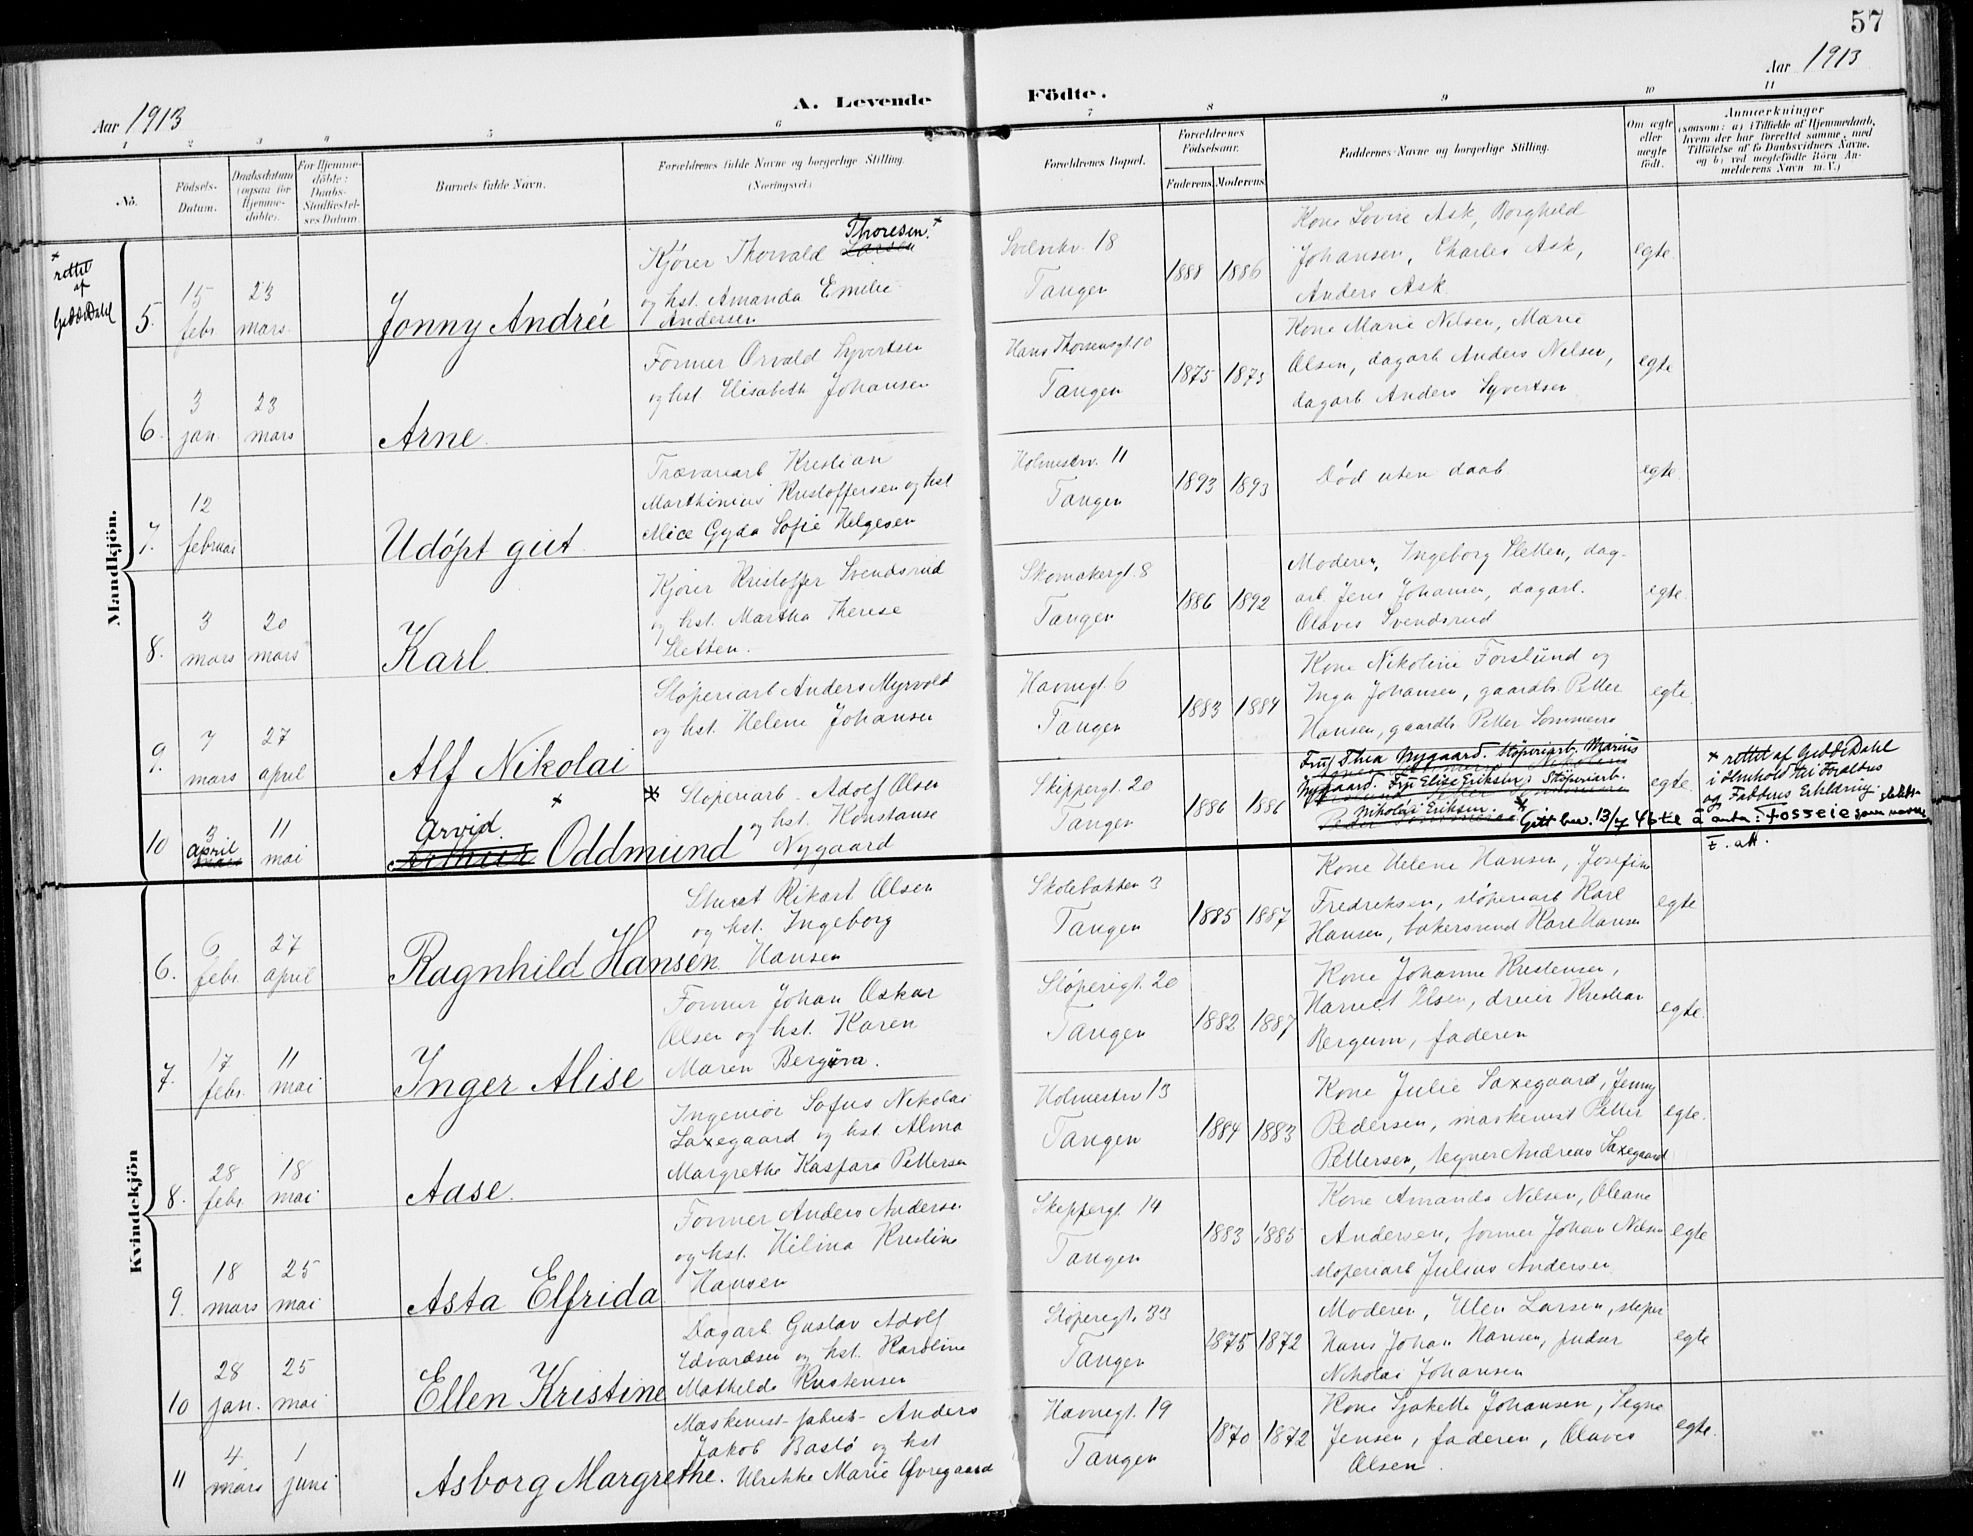 57
Aar 1913
A. Levende Födte.
Aar 1913
1 2 3 4 5 6 7 8 9 10 11
No.
Födsels-Datum.
Daabsdatum (ogsaa for Hjemmedöbte).
For Hjemmedöbte: Daabs-Stadfæstelses Datum
Barnets fulde Navn.
Forældrenes fulde Navne og borgerlige Stilling.
(Næringsvei)
Forældrenes Bopæl.
Forældrenes Födselsaar.
Faderens Moderens
Faddernes Navne og borgerlige Stilling.
Om ægte eller uægte födt.
Anmærkninger
(saasom: a) i Tilfælde af Hjemmedaab, hvem der har forrettet samme, med Tilföielse af to Daabsvidners Navne, og b) ved uægtefödte Börn Anmelderens Navn m. V.)
Mandkjön.
x rettet af Gedde Dahl
5. 15 febr. 23 mars Jonny Andreé
Kjører Thorvald Larsen Thoresen x
og hst. Amanda Emilie
Andersen
Svelvikv. 18
Tangen
1888 1886
Kone Lovise Ask, Borghild
Johansen, Charles Ask,
Anders Ask
egte
6. 3 jan. 23 mars Arne
Former Orvald Syvertsen
og hst Elisabeth Johansen
Hans Thoresensgt. 10
Tangen
1875 1873
Kone Marie Nilsen, Marie
Olsen, dagarb Anders Nilsen,
dagarb Anders Syvertsen
egte
7. 12 februar Udøpt gut
Trævarearb Kristian
Marthinius Kristoffersen og hst
Alice Gyda Sofie Helgesen
Holmestrv. 11
Tangen
1893 1893
Død uten daab
egte
8. 3 mars 20 mars Karl
Kjører Kristoffer Svendsrud
og hst. Martha Therese
Sletten.
Skomakergt. 8
Tangen
1886 1892
Moderen, Ingeborg Sletten, dag-
arb Jens Johansen, dagarb.
Olaves Svendsrud
egte
9. 7 mars 27 april Alf Nikolai
Støperiarb Anders Myrvold
og hst. Helene Johansen
Havnegt. 6
Tangen
1883 1884
Kone Nikoline Forslund og
Inga Johansen, gaardb. Petter
Hansen, gaardb. Petter Sommero
egte
10 9 april mars 11 mai Arvid Arthur Oddmund x
x Støperiarb. Adolf Olsen
og hst. Konstanse
Nygaard
Skippergt. 20
Tangen
1886 1886
Fru Thea Nygaard. Støperiarb. Marius
Nygaard. Fru Elise Eriksen; Støperiarb.
Nikolai Eriksen.
egte
x rettet af Gedde Dahl
i Henhold til Forældres
og Faddres Erklæring
x Gitt bev. 13/7 46 til å anta: Fosseie som slekts-navn
E. att.
Kvindekjön
6. 6 febr. 27 april Ragnhild Hansen
Stuert Rikart Olsen
og hst. Ingeborg
Hansen
Skolebakken 3
Tangen
1885 1887
Kone Helene Hansen, Josefine
Fredriksen, støperiarb Karl
Hansen, bakersvend Kare Hansen
egte
7. 17 febr. 11 mai Inger Alise
Former Johan Oskar
Olsen og hst. Karen
Maren Bergum.
Støperigt. 20
Tangen
1882 1887
Kone Johanne Kristensen,
Harriet Olsen, dreier Kristian
Bergum, faderen
egte
8. 28 febr. 18 mai Aase.
Ingeniør Sofus Nikolai
Saxegaard og hst Alma
Margrethe Kaspara Pettersen
Holmestrv 13
Tangen
1884 1883
Kone Julie Saxegaard, Jenny
Pedersen, maskinist Petter
Pettersen, tegner Andreas Saxegaard
egte.
9. 18 mars 25 mai Asta Elfrida
Former Anders Andersen
og hst. Hilma Kristine
Hansen
Skippergt. 14
Tangen
1883 1885
Kone Amanda Nilsen, Oleane
Andersen, former Johan Nilsen
støperiarb Julius Andersen
egte
10 28 jan. 25 mai Ellen Kristine
Dagarb. Gustav Adolf
Edvardsen og hst. Karoline
Mathilde Kristensen
Støperigt. 33
Tangen
1875 1872
Moderen, Elen Larsen, støper
Hans Johan Hansen, pudser
Nikolai Johansen
egte
11 4 mars 1 juni Asborg Margrethe.
Maskinist-fabrik- Anders
Jakob Bastø og hst
Ulrikke Marie Øvregaard
Havnegt. 19
Tangen
1870 1872
Kone Sjakette Johansen, Signe
Jensen, faderen, Olaves
Olsen.
egte.